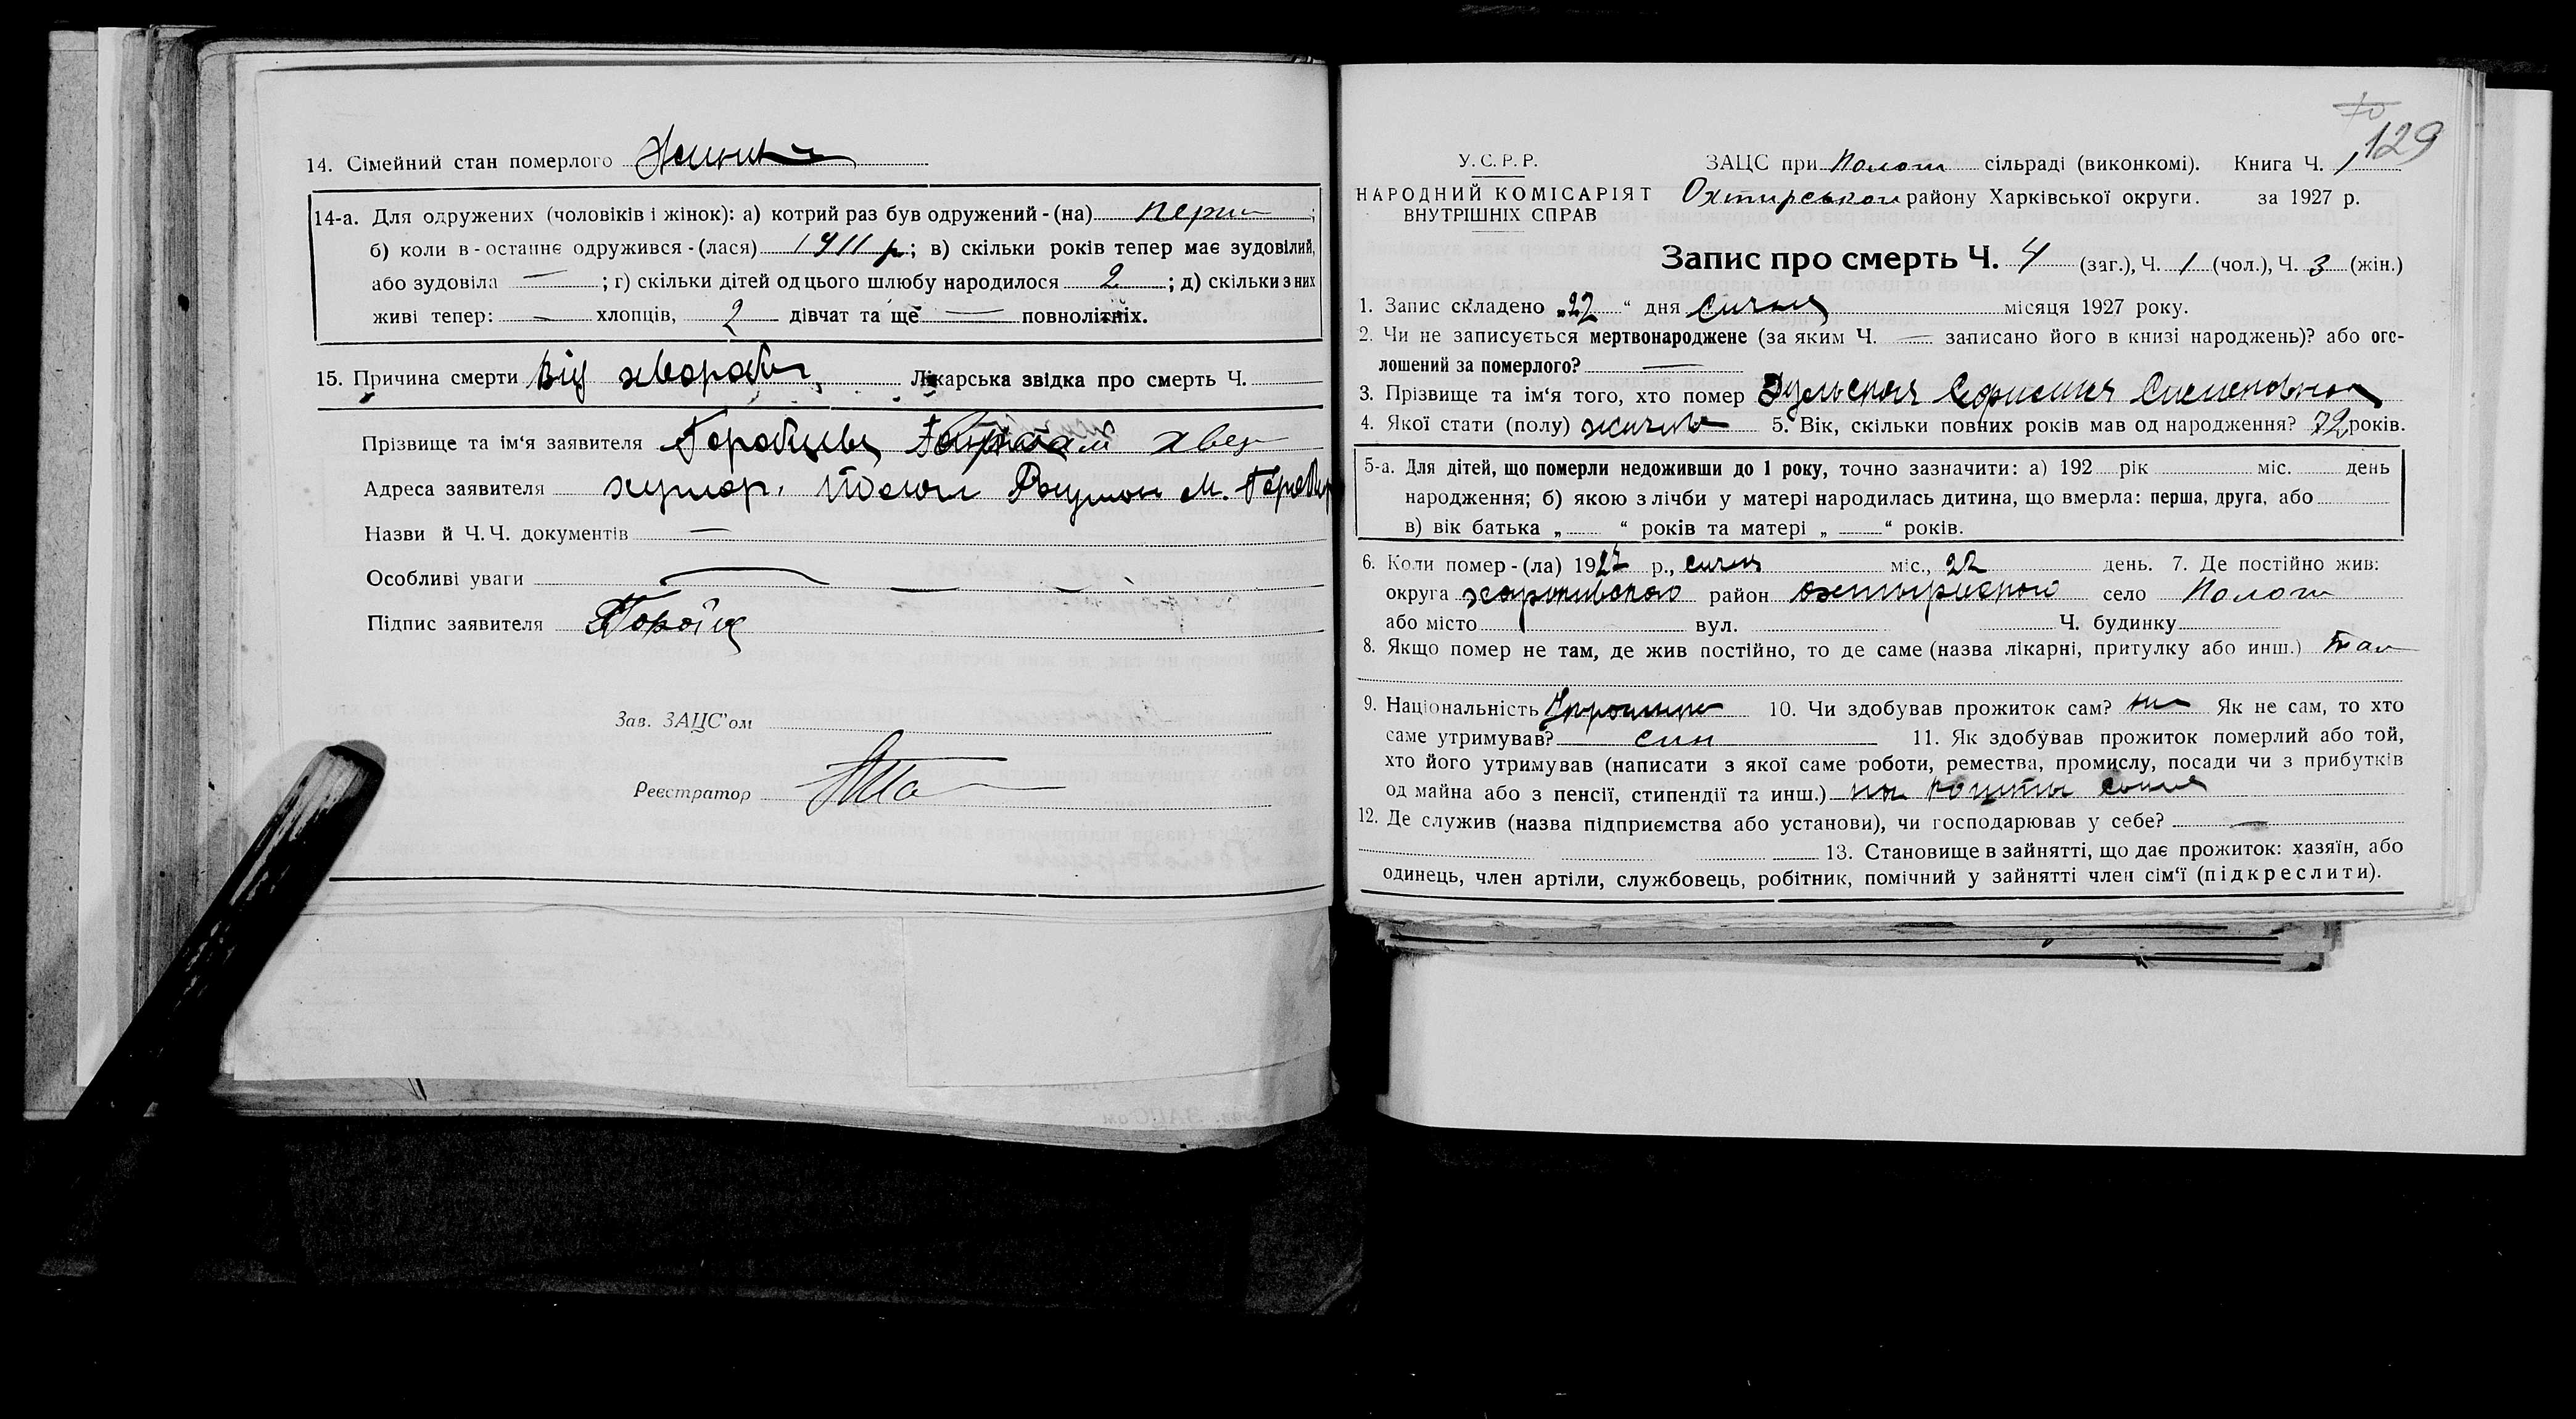 14. Сімейний стан померлого
14-а. Для одружених (чоловіків і жінок): а) котрий раз був одружений-(на) перш ;
б) коли в-останнє одружився-(лася) 1911 р; в) скільки років тепер має зудовілий,
або зудовіла — ; г) скільки дітей од цього шлюбу народилося 2 ; д) скільки з них
живі тепер: — хлопців, 2 дівчат та ще — повнолітніх.
15. Причина смерти Від хвороби, Лікарська звідка про смерть Ч.
Прізвище та ім'я заявителя
Адреса заявителя хутор. М.
Назви й Ч.Ч. документів —
Особливі уваги —
Підпис заявителя
Зав. ЗАЦС'ом
Реєстратор
70
129
У.С.Р.Р.
НАРОДНИЙ КОМІСАРІЯТ
ВНУТРІШНІХ СПРАВ
ЗАЦС при сільраді (виконкомі). Книга Ч. 1
Охтирськом району Харківської округи. за 1927 р.
Запис про смерть Ч. 4 (заг.), Ч. 1 (чол.), Ч. 3 (жін.)
1. Запис складено „22“ дня січня місяця 1927 року.
2. Чи не записується мертвонароджене (за яким Ч. — записано його в книзі народжень)? або ого-
лошений за померлого? —
3. Прізвище та ім'я того, хто помер
4. Якої стати (полу) 5. Вік, скільки повних років мав од народження? 72 років.
5-а. Для дітей, що померли недоживши до 1 року, точно зазначити: а) 192 рік міс. день
народження; б) якою з лічби у матері народилась дитина, що вмерла: перша, друга, або
в) вік батька „ “ років та матері „ — “ років.
6. Коли помер-(ла) 1927 р., січня міс., 22 день. 7. Де постійно жив:
округа харківського район охтирського село
або місто вул. Ч. будинку
8. Якщо помер не там, де жив постійно, то де саме (назва лікарні, притулку або инш.) там
9. Національність 10. Чи здобував прожиток сам? ни Як не сам, то хто
саме утримував? син 11. Як здобував прожиток померлий або той,
хто його утримував (написати з якої саме роботи, ремества, промислу, посади чи з прибутків
од майна або з пенсії, стипендії та инш.) на кошти сина
12. Де служив (назва підприємства або установи), чи господарював у себе? —
13. Становище в зайнятті, що дає прожиток: хазяїн, або
одинець, член артіли, службовець, робітник, помічний у зайнятті член сім'ї (підкреслити).